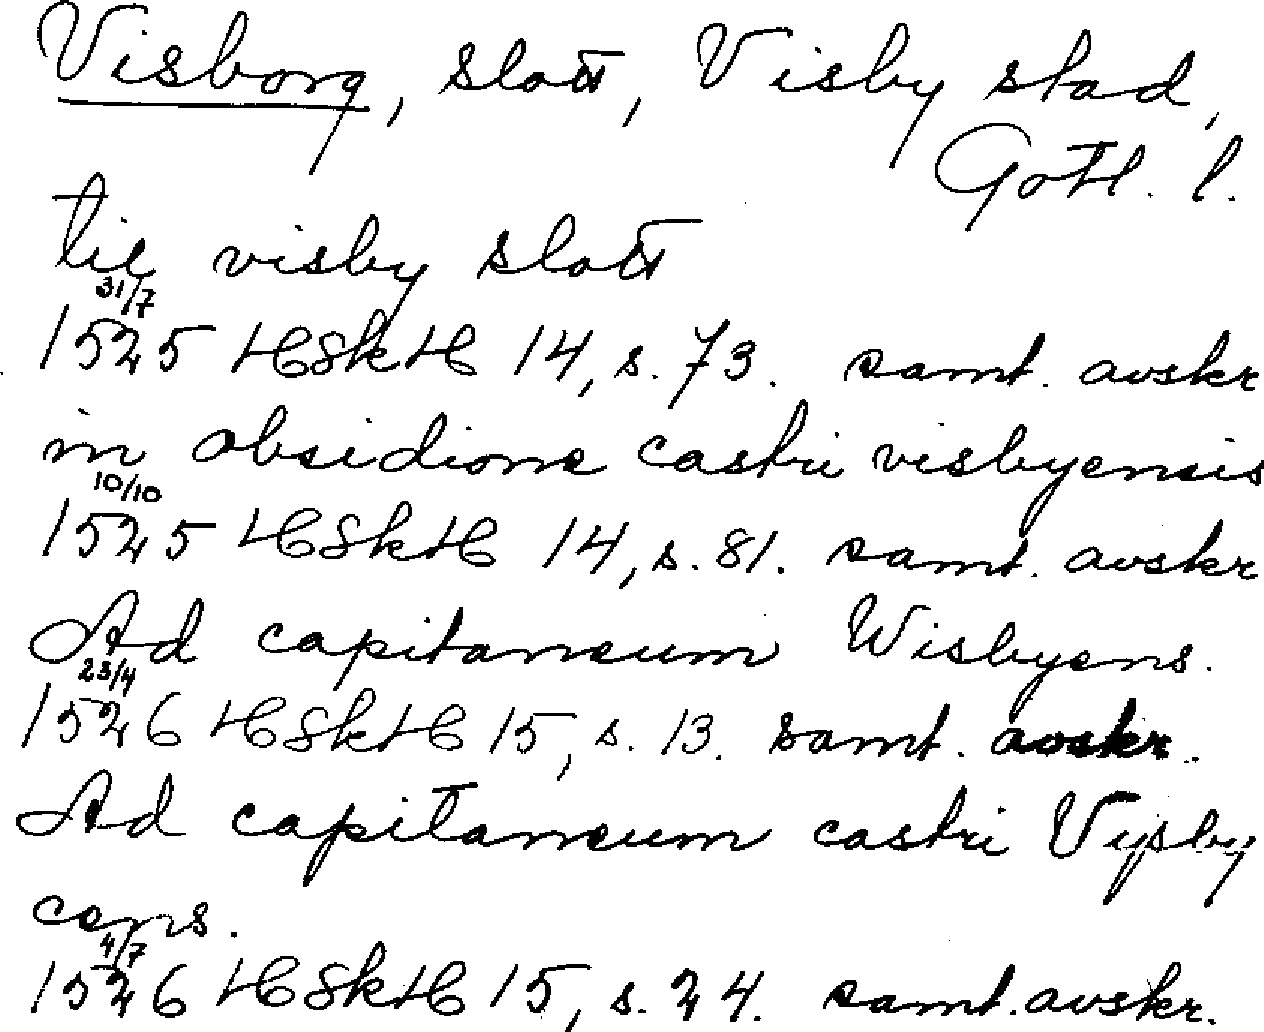 Visborg, slott, Visby stad,
Gotl. l.
til visby slott
31/7
1525 HSkH 14, s. 73. samt. avskr
in obsidione castri visbyensis
10/10
1525 HSkH 14, s. 81. samt. avskr
Ad capitaneum Wisbyens.
23/4
1526 HSkH 15, s. 13. samt. avskr.
Ad capitaneum castri Vysby
cens.
4/7
1526 HSkH 15, s. 24. samt. avskr.